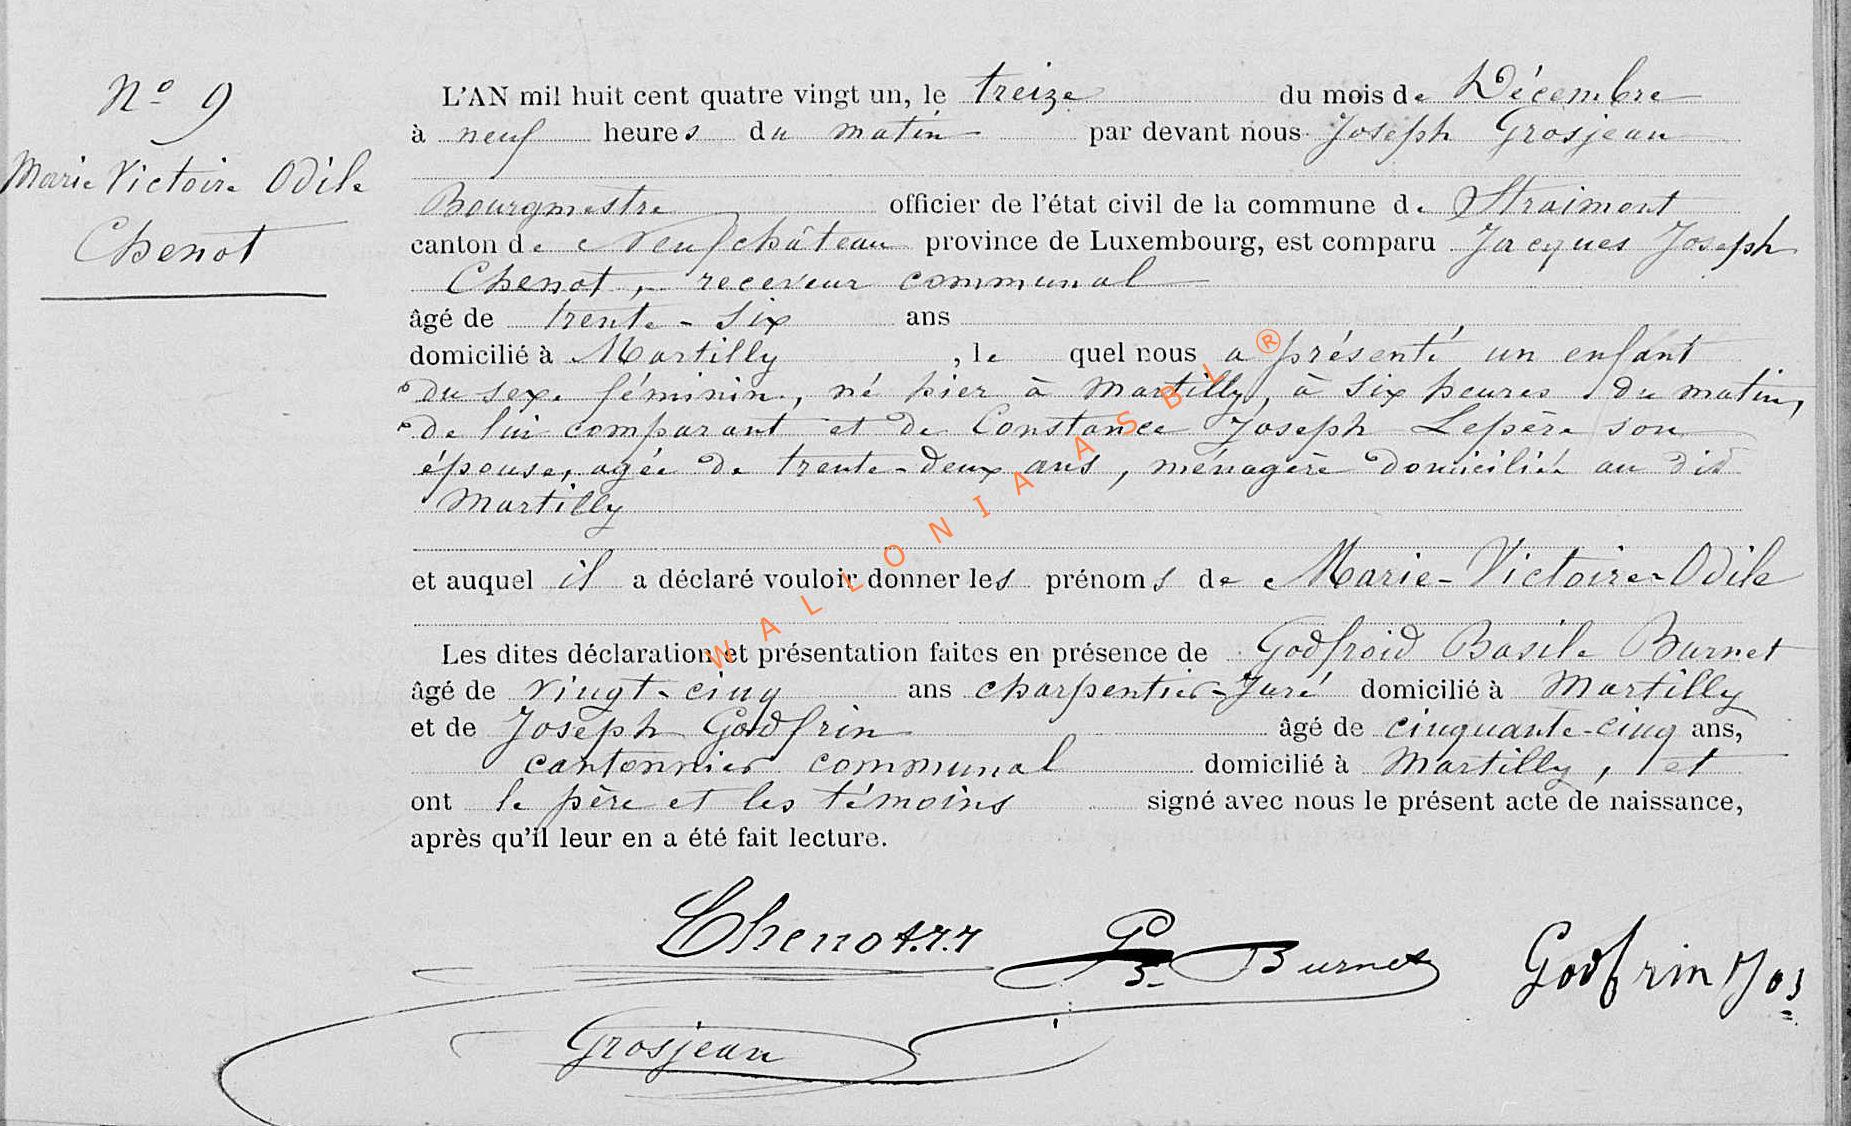 Nº 9
Marie Victoire Odile
Chenot
L'AN mil huit cent quatre vingt un, le treize du mois de Décembre
à neuf heures du matin par devant nous Joseph Grosjean
Bourgmestre officier de l'état civil de la commune de Straimont
canton de Neufchâteau province de Luxembourg, est comparu Jacques Joseph
Chenot, receveur communal
âgé de trente-six ans
domicilié à Martilly, le quel nous a présenté un enfant
du sexe féminin, né hier à Martilly, à six heures du matin,
de lui comparant et de Constance Joseph Lepère son
épouse, agée de trente-deux ans, ménagère domiciliée au dit
Martilly
et auquel il a déclaré vouloir donner les prénoms de Marie-Victoire-Odile
Les dites déclaration et présentation faites en présence de Godfroid Basile Burnet
âgé de vingt-cinq ans charpentier-Juré domicilié à Martilly
et de Joseph Godfrin âgé de cinquante-cinq ans,
cantonnier communal domicilié à Martilly, et
ont le père et les témoins signé avec nous le présent acte de naissance,
après qu'il leur en a été fait lecture.
Chenot J.J
G B Burnet
Godfrin Jos
Grosjean
WALLONIA ASBL ®